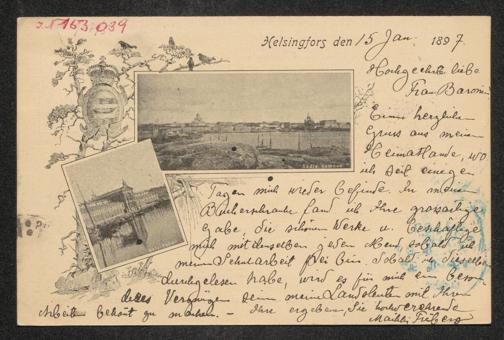 I.N. 163.039
Helsingfors den 15 Jan. 1897.
Hochgeehrte liebe
Frau Baronin
Einen herzlichen
Gruss aus meinem
Heimatlande, wo
ich seit einigen
Tagen mich wieder befinde. In meinem
Bücherschranke fand ich Ihre grossartige
Gabe, die schönen Werke u. beschäftige
mich mit denselben jeden Abend, sobald ich
meiner Schularbeit frei bin. Sobald ich dieselben
durchgelesen habe, wird es für mich ein beson-
deres Vergnügen sein meine Landsleuten mit Ihren
Arbeiten bekannt zu machen. – Ihre ergebene, Sie hochverehrende
Maikki Friberg